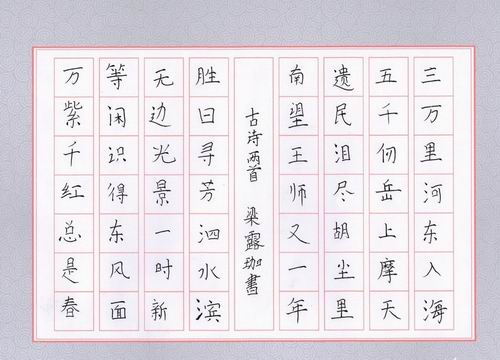 三万里河东入海
五千仞岳上摩天
遗民泪尽胡尘里
南望王师又一年
古诗两首 梁露珈書
胜日寻芳泗水滨
无边光景一时新
等闲识得东风面
万紫千红总是春